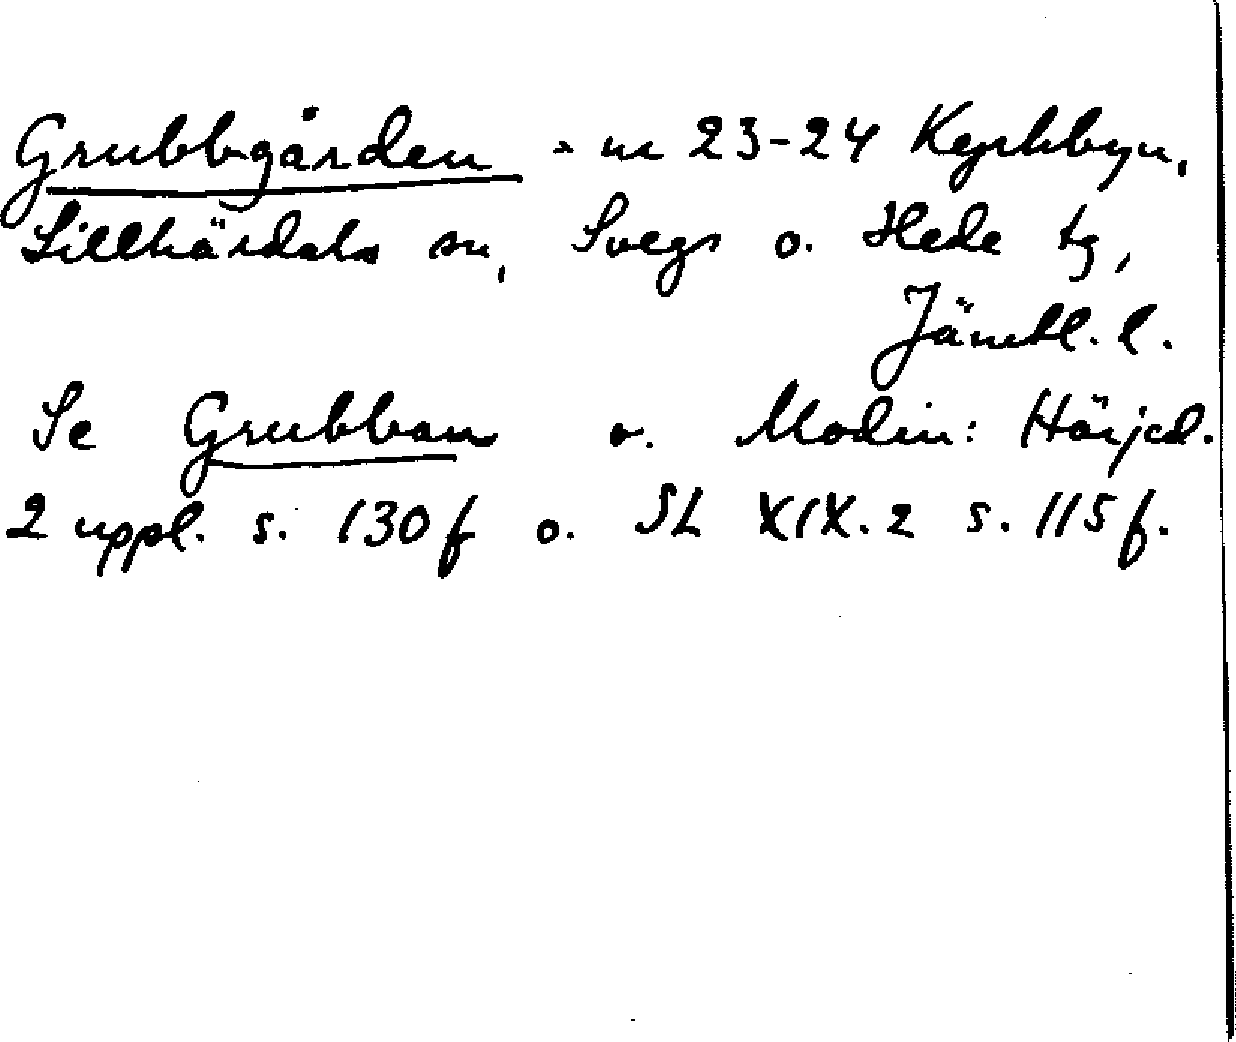 Grubbgården = nr 23-24 Kyrkbyn,
Lillhärdals sn, Svegs o. Hede tg,
Jämtl. l.
Se Grubban o. Modin: Härjed.
2 uppl. s. 130 f o. SL XIX. 2 s. 115 f.